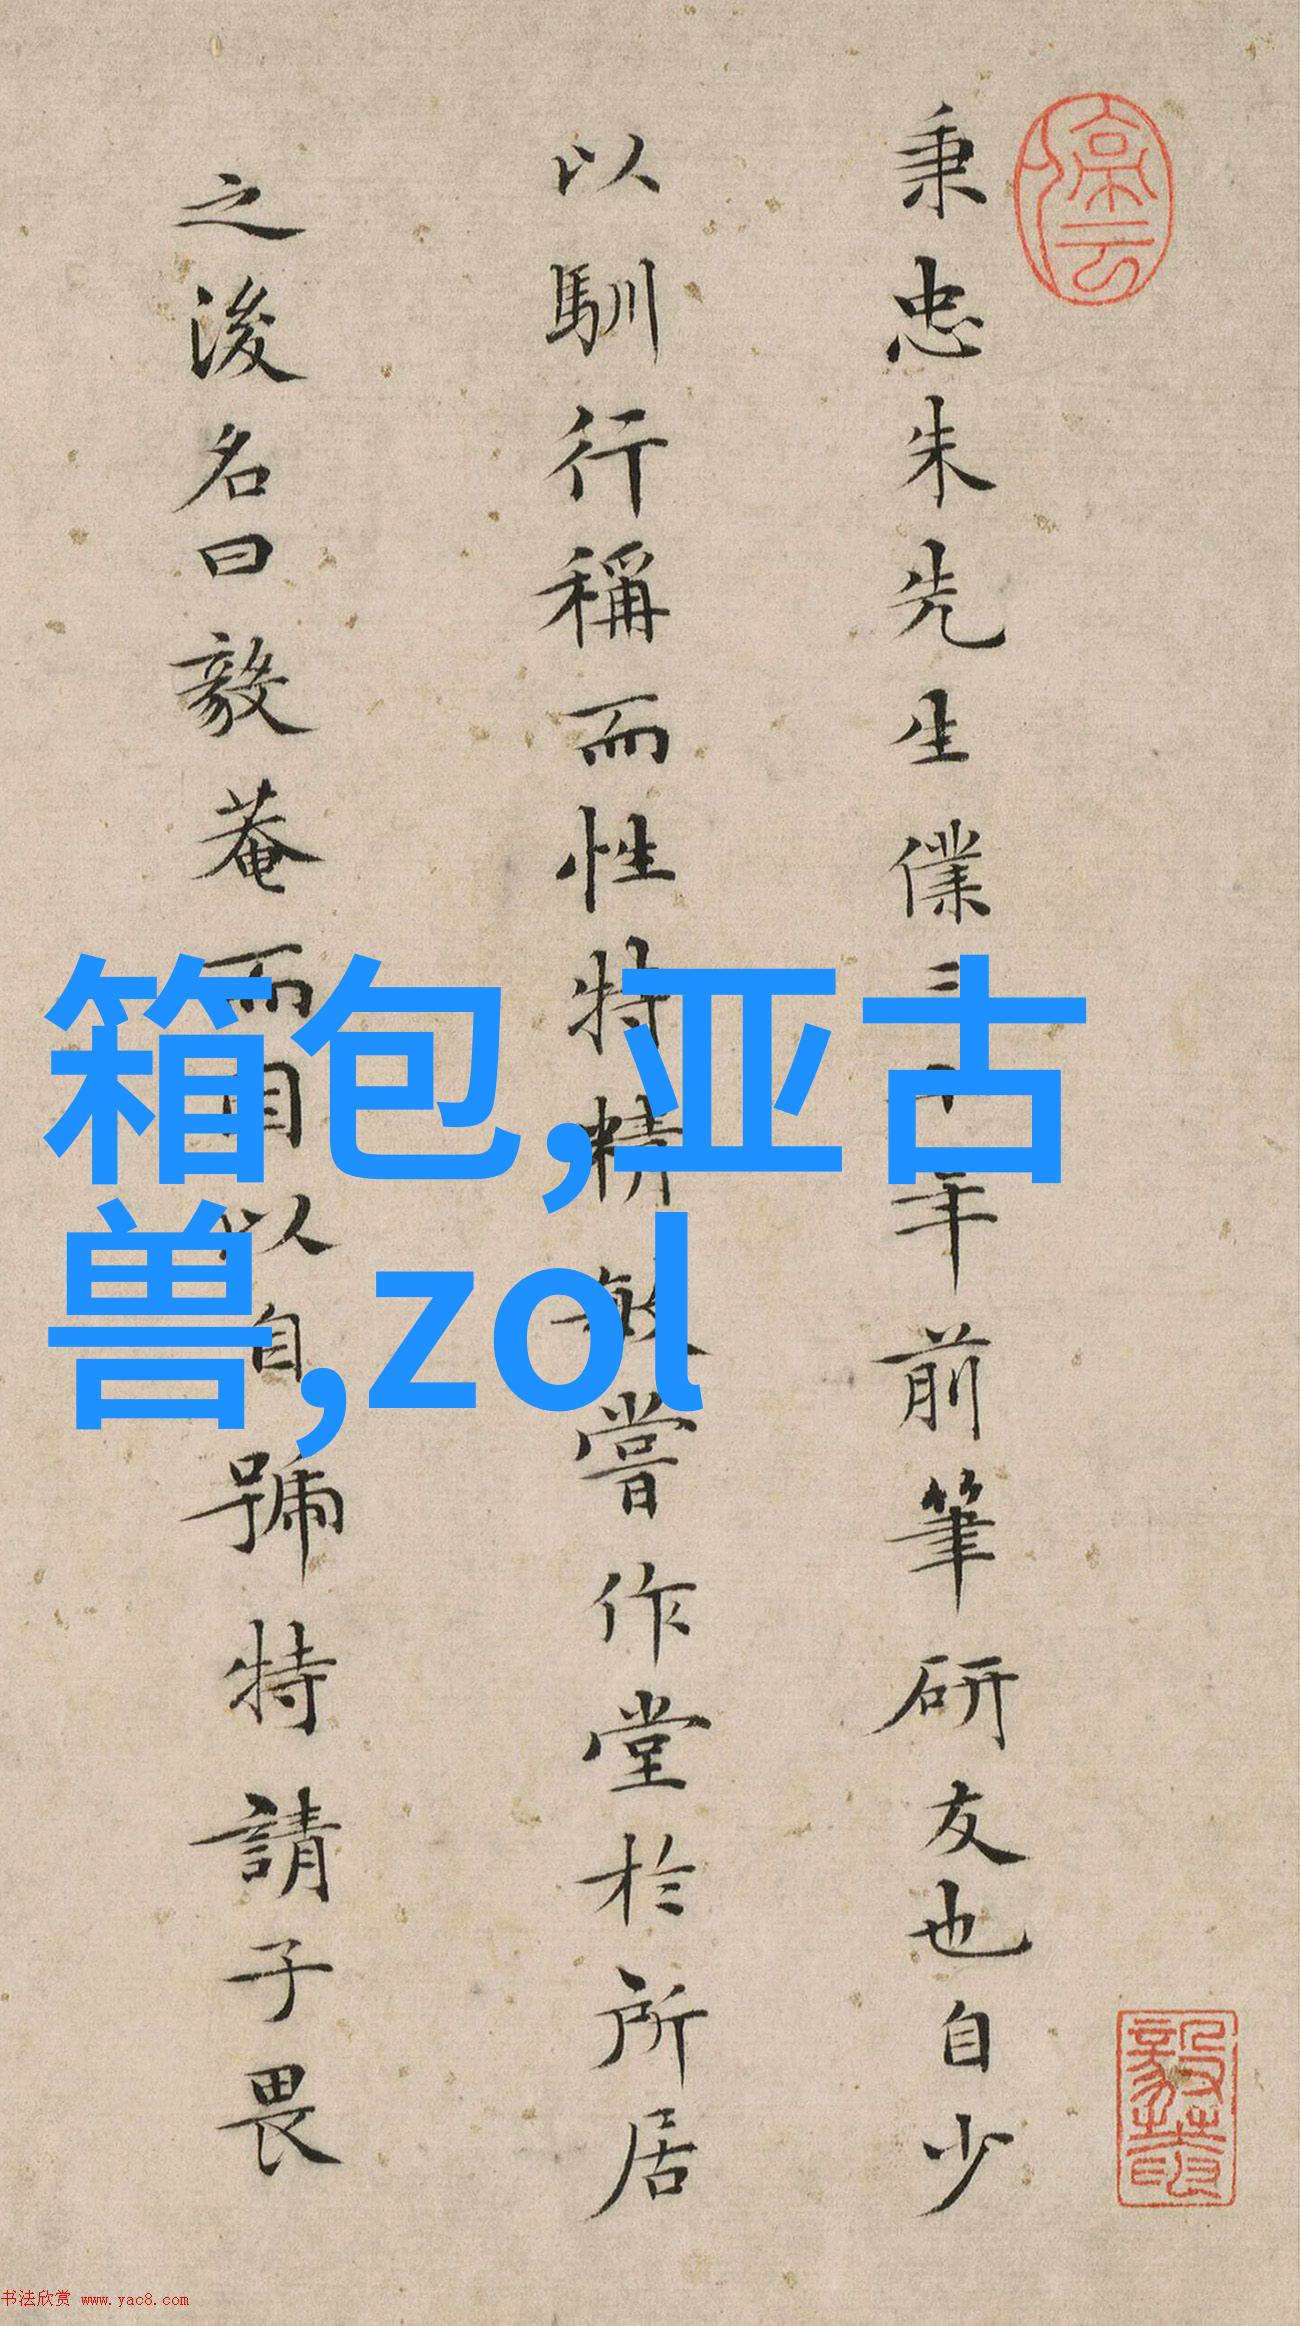 秉忠朱先生僕三十年前筆研友也自少
以馴行稱而性特精敏嘗作堂於所居
之後名曰毅菴而因以自號特請子畏
箱包,亚古
兽,zol
书法欣赏 www.yac8.com